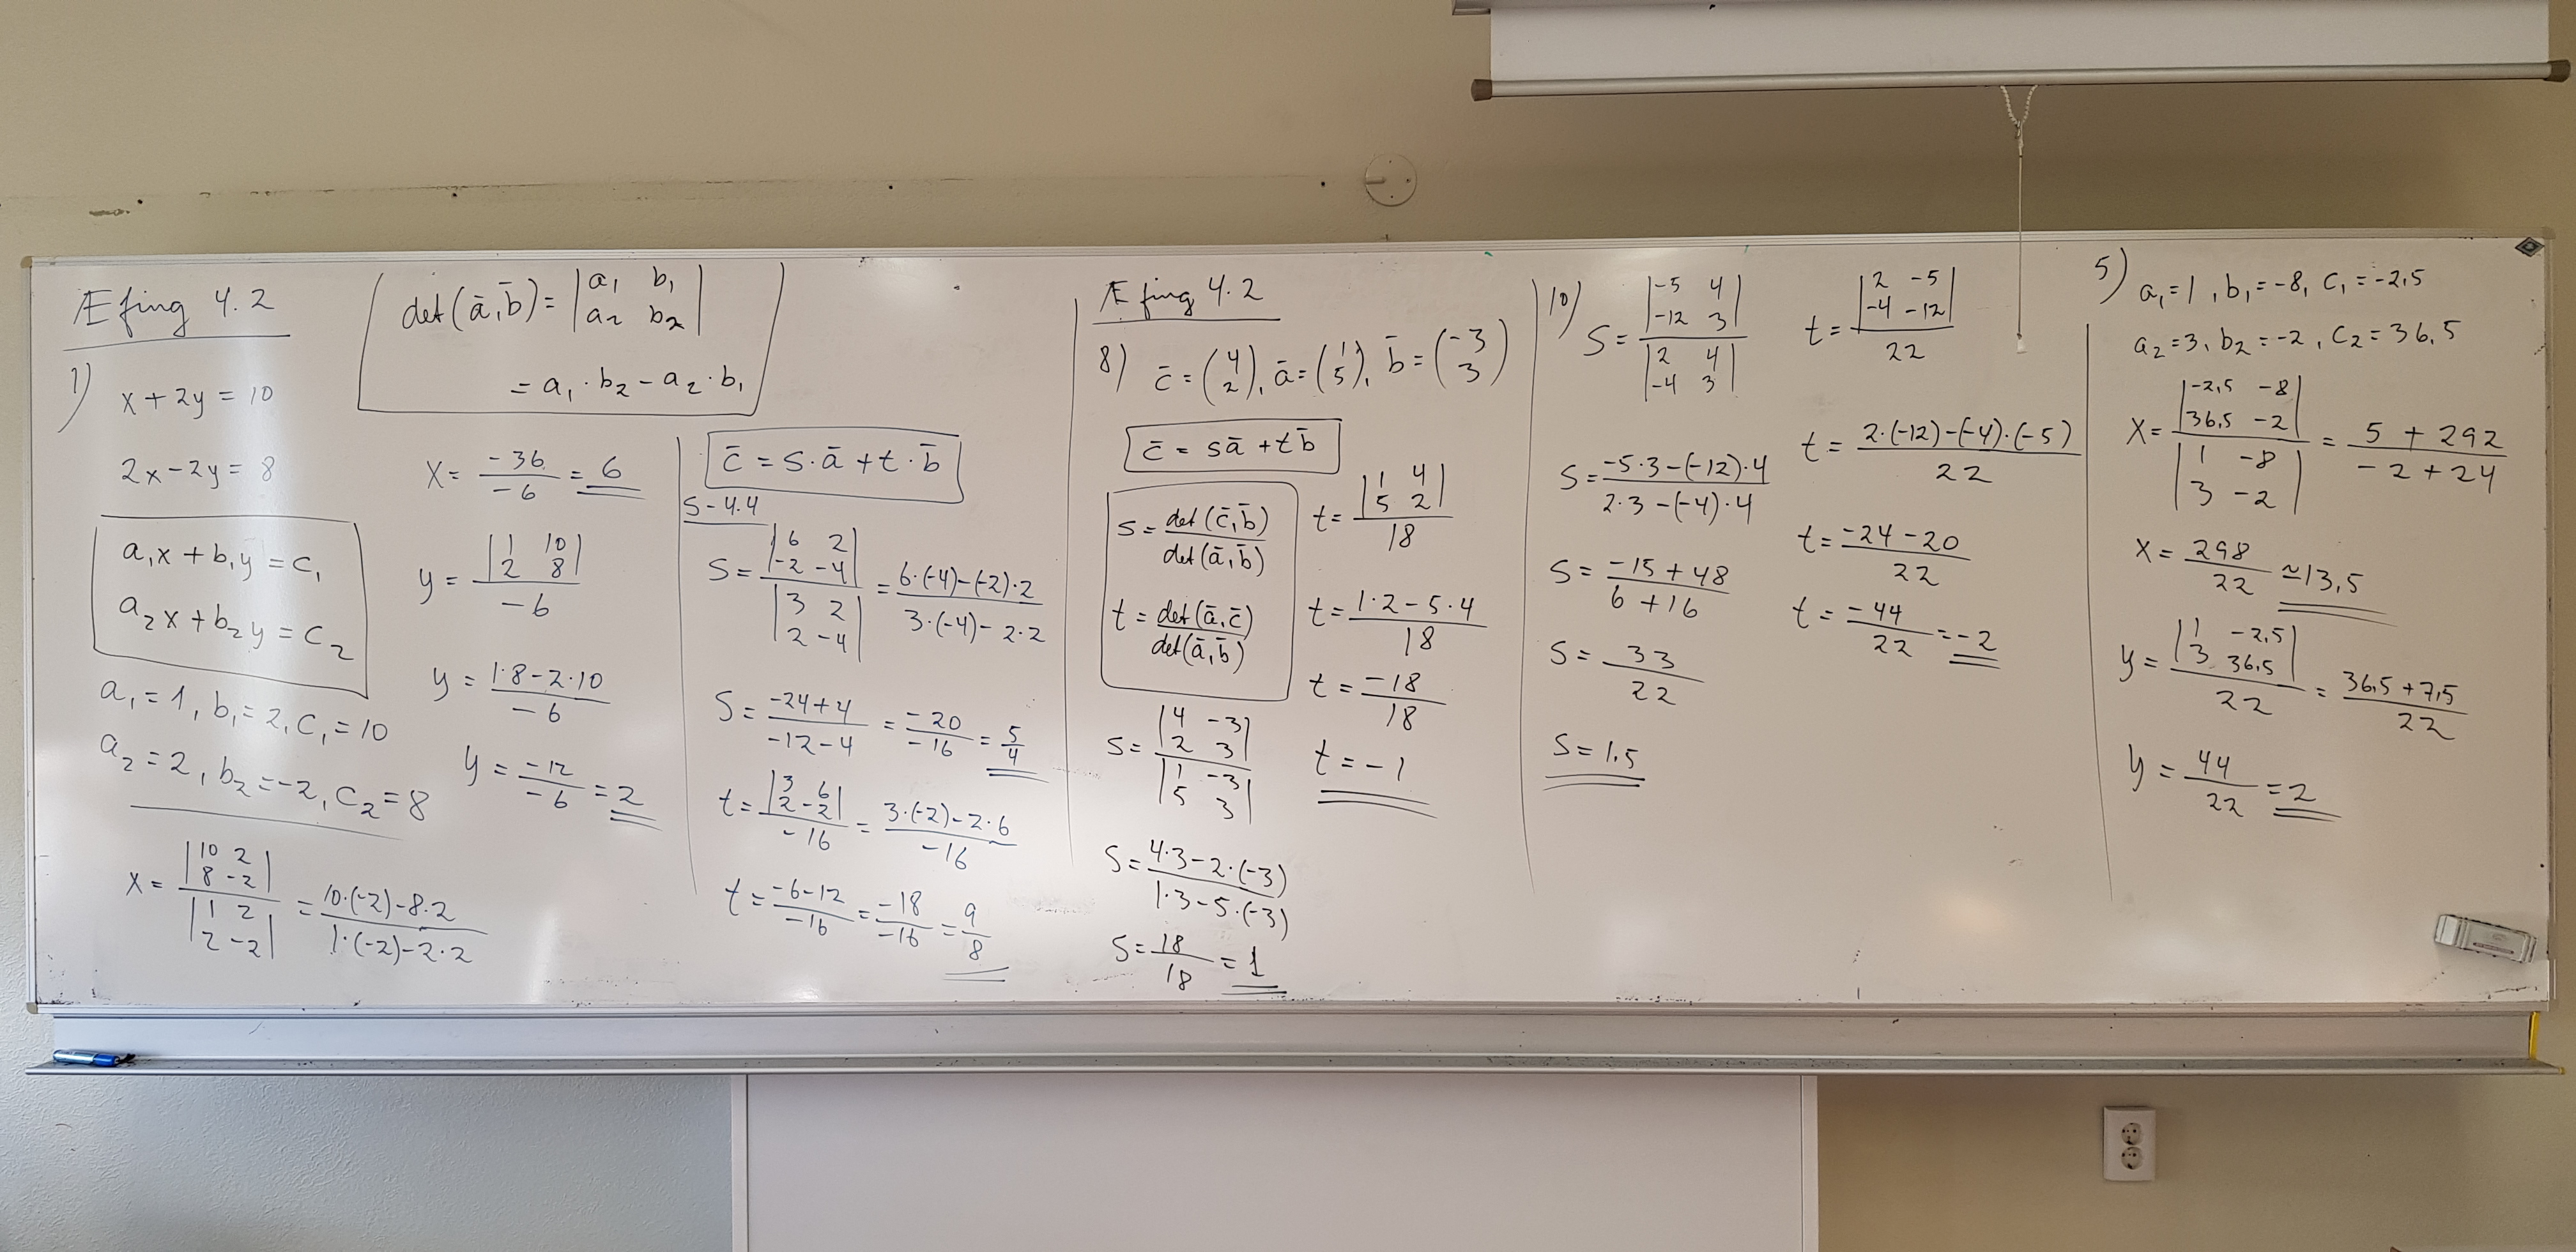 Æfing 4.2
det(ā,b̄) = |a₁ b₁|
|a₂ b₂|
= a₁·b₂ - a₂·b₁
1)
x + 2y = 10
2x - 2y = 8
a₁x + b₁y = c₁
a₂x + b₂y = c₂
a₁ = 1, b₁ = 2, c₁ = 10
a₂ = 2, b₂ = -2, c₂ = 8
x = |10 2; 8 -2| / |1 2; 2 -2| = 10·(-2)-8·2 / 1·(-2)-2·2
x = -36 / -6 = 6
y = |1 10; 2 8| / -6
y = 1·8-2·10 / -6
y = -12 / -6 = 2
c̄ = s·ā + t·b̄
S-4.4
s = |6 2; -2 -4| / |3 2; 2 -4| = 6·(-4)-(-2)·2 / 3·(-4)-2·2
s = -24+4 / -12-4 = -20 / -16 = 5/4
t = |3 6; 2 -2| / -16 = 3·(-2)-2·6 / -16
t = -6-12 / -16 = -18 / -16 = 9/8
Æfing 4.2
8) c̄ = (4; 2), ā = (1; 5), b̄ = (-3; 3)
c̄ = sā + tb̄
s = det(c̄,b̄) / det(ā,b̄)
t = det(ā,c̄) / det(ā,b̄)
s = |4 -3; 2 3| / |1 -3; 5 3|
s = 4·3-2·(-3) / 1·3-5·(-3)
s = 18 / 18 = 1
t = |1 4; 5 2| / 18
t = 1·2-5·4 / 18
t = -18 / 18
t = -1
10)
s = |-5 4; -12 3| / |2 4; -4 3|
s = -5·3-(-12)·4 / 2·3-(-4)·4
s = -15+48 / 6+16
s = 33 / 22
s = 1.5
t = |2 -5; -4 -12| / 22
t = 2·(-12)-(-4)·(-5) / 22
t = -24-20 / 22
t = -44 / 22 = -2
5) a₁=1, b₁=-8, c₁=-2,5
a₂=3, b₂=-2, c₂=36,5
x = |-2,5 -8; 36,5 -2| / |1 -8; 3 -2| = 5 + 292 / -2 + 24
x = 298 / 22 ≃ 13,5
y = |1 -2,5; 3 36,5| / 22 = 36,5+7,5 / 22
y = 44 / 22 = 2